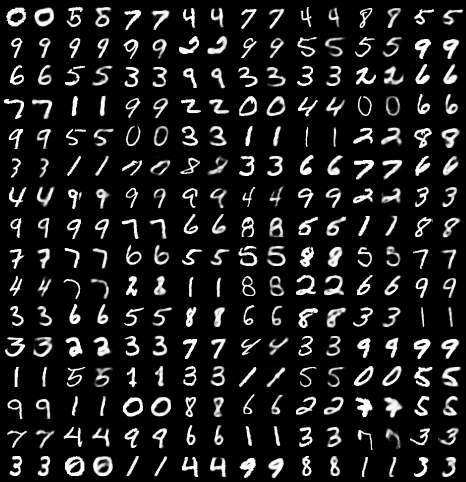 0 0 5 5 7 7 4 4 7 7 4 4 8 8 5 5
9 9 9 9 9 9 2 2 9 9 5 5 5 5 9 9
6 6 5 5 3 3 9 9 3 3 3 3 2 2 6 6
7 7 1 1 9 9 2 2 0 0 4 4 0 0 6 6
9 9 5 5 0 0 3 3 1 1 1 1 2 2 8 8
3 3 1 1 0 0 8 8 3 3 6 6 7 7 6 6
4 4 9 9 9 9 9 9 4 4 9 9 2 2 3 3
9 9 9 9 7 7 6 6 8 8 5 5 1 1 8 8
7 7 7 7 6 6 5 5 5 5 8 8 5 5 7 7
4 4 7 7 2 2 1 1 8 8 2 2 6 6 9 9
3 3 6 6 5 5 8 8 6 6 8 8 3 3 1 1
3 3 2 2 3 3 7 7 4 4 3 3 9 9 9 9
1 1 5 5 1 1 3 3 1 1 5 5 0 0 5 5
9 9 1 1 0 0 8 8 6 6 2 2 7 7 5 5
7 7 4 4 9 9 6 6 1 1 3 3 7 7 3 3
3 3 0 0 1 1 4 4 9 9 8 8 1 1 3 3